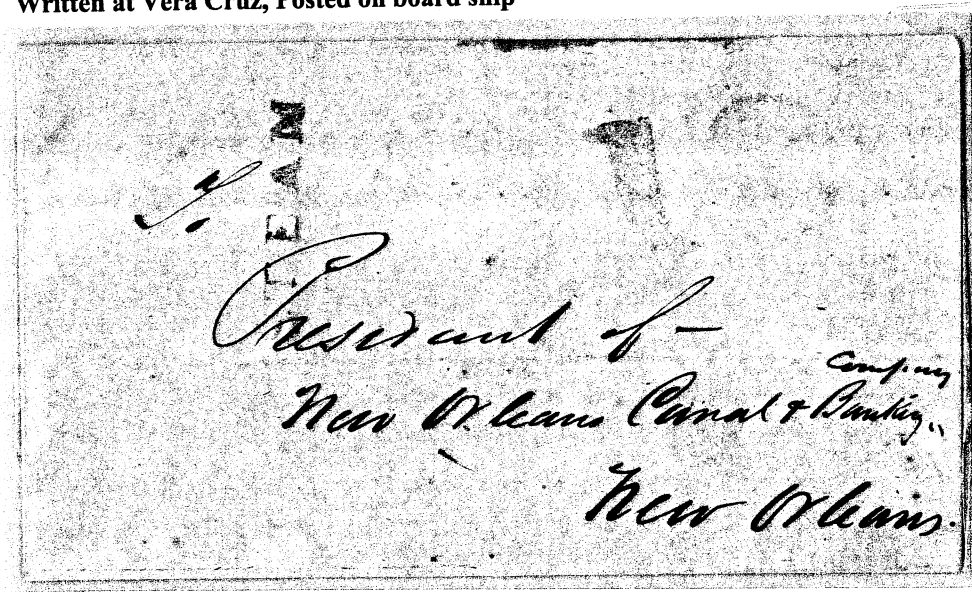 Written at Vera Cruz, Posted on board ship
To
President of —
New Orleans Canal & Banking
Company
New Orleans.